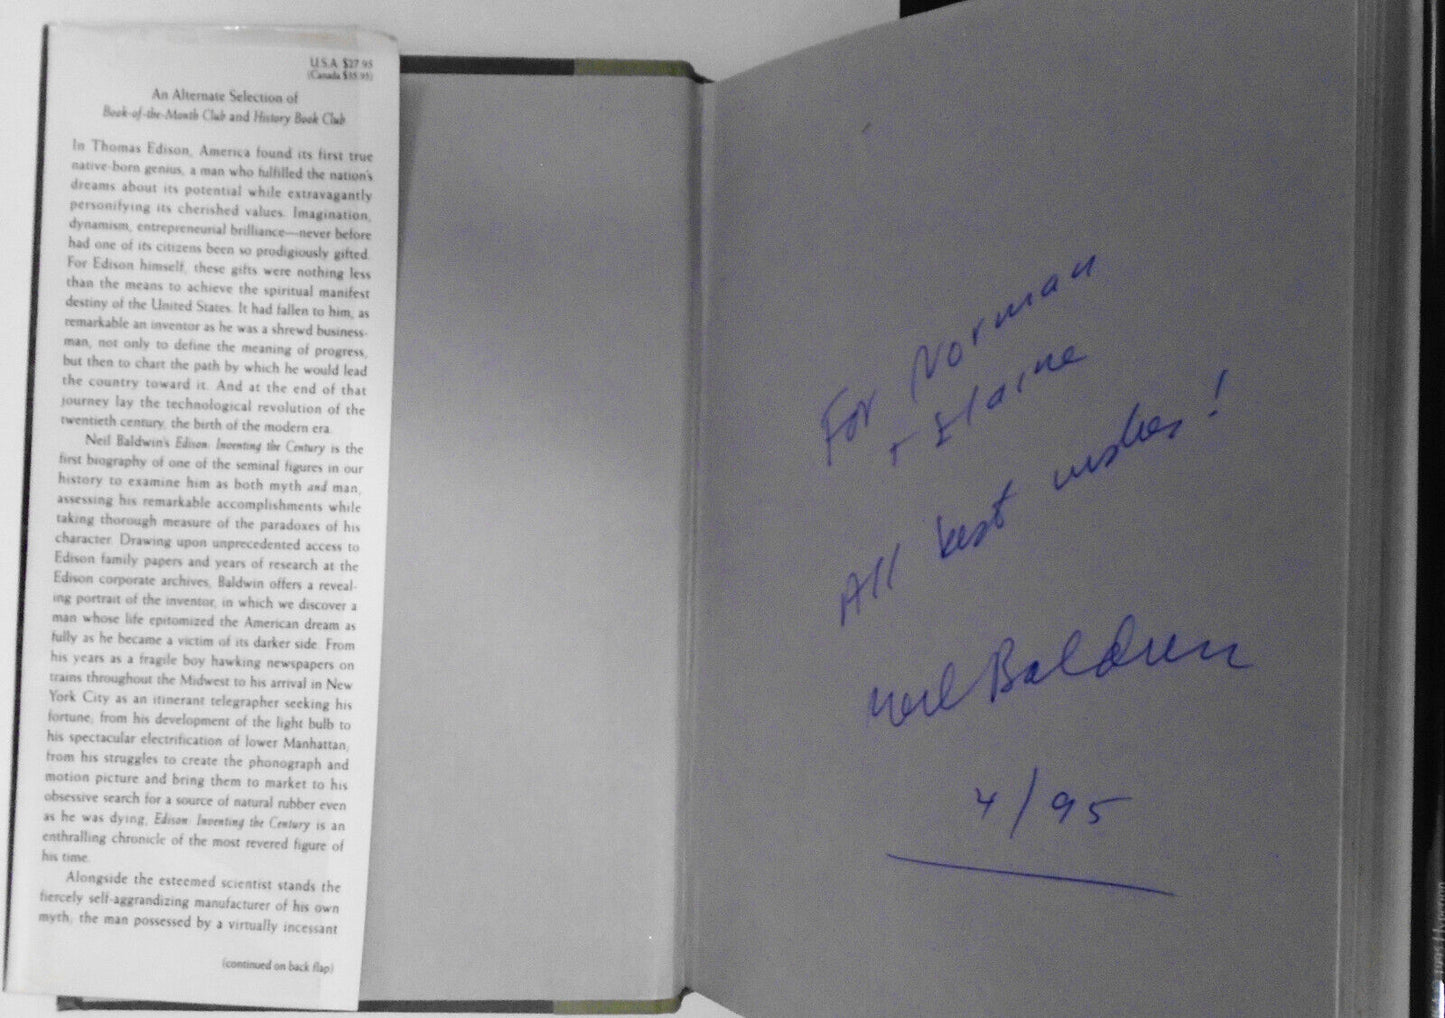 U.S.A. $27.95
(Canada $35.95)
An Alternate Selection of
Book-of-the-Month Club and History Book Club
In Thomas Edison, America found its first true
native-born genius, a man who fulfilled the nation's
dreams about its potential while extravagantly
personifying its cherished values. Imagination,
dynamism, entrepreneurial brilliance—never before
had one of its citizens been so prodigiously gifted.
For Edison himself, these gifts were nothing less
than the means to achieve the spiritual manifest
destiny of the United States. It had fallen to him, as
remarkable an inventor as he was a shrewd business-
man, not only to define the meaning of progress,
but then to chart the path by which he would lead
the country toward it. And at the end of that
journey lay the technological revolution of the
twentieth century, the birth of the modern era.
Neil Baldwin's Edison: Inventing the Century is the
first biography of one of the seminal figures in our
history to examine him as both myth and man,
assessing his remarkable accomplishments while
taking thorough measure of the paradoxes of his
character. Drawing upon unprecedented access to
Edison family papers and years of research at the
Edison corporate archives, Baldwin offers a reveal-
ing portrait of the inventor, in which we discover a
man whose life epitomized the American dream as
fully as he became a victim of its darker side. From
his years as a fragile boy hawking newspapers on
trains throughout the Midwest to his arrival in New
York City as an itinerant telegrapher seeking his
fortune; from his development of the light bulb to
his spectacular electrification of lower Manhattan;
from his struggles to create the phonograph and
motion picture and bring them to market to his
obsessive search for a source of natural rubber even
as he was dying, Edison: Inventing the Century is an
enthralling chronicle of the most revered figure of
his time.
Alongside the esteemed scientist stands the
fiercely self-aggrandizing manufacturer of his own
myth; the man possessed by a virtually incessant
(continued on back flap)
For Norman
+ Elaine
All best wishes!
Neil Baldwin
4/95